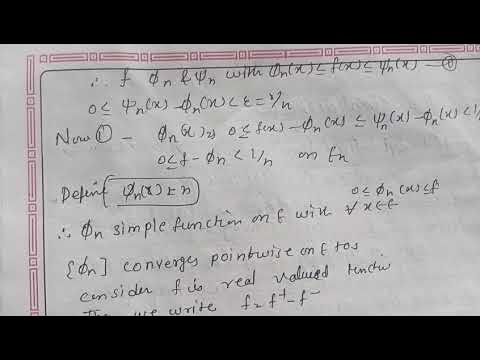 ∴ f φn & ψn with φn(x) ≤ f(x) ≤ ψn(x) —
0 ≤ ψn(x) - φn(x) < ε = 1/n
Now ① - φn(x) 0 ≤ f(x) - φn(x) ≤ ψn(x) - φn(x) < 1/
0 ≤ f - φn < 1/n on En
Define φn(x) = n
0 ≤ φn(x) ≤ f
∴ φn simple function on E with ∀ x ∈ E
{φn} converges pointwise on E to
consider f is real valued
we write f = f⁺ - f⁻